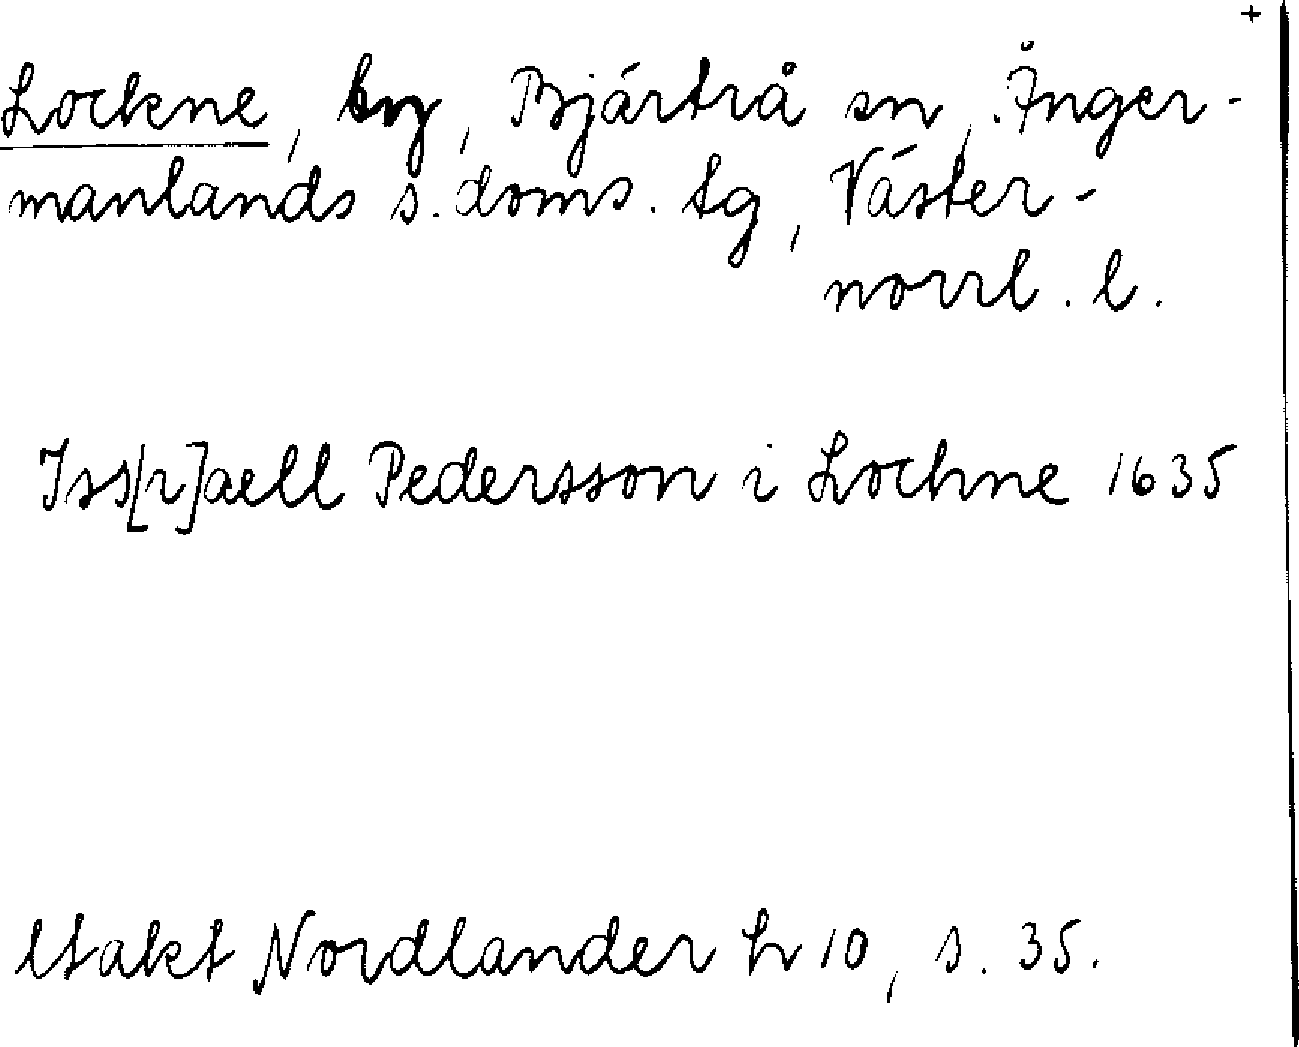 +
Lockne, by, Bjärtrå sn, Ånger-
manlands s. doms. tg, Väster-
norrl. l.
Iss[r]aell Pedersson i Lochne 1635
Utakt Nordlander h 10, s. 35.